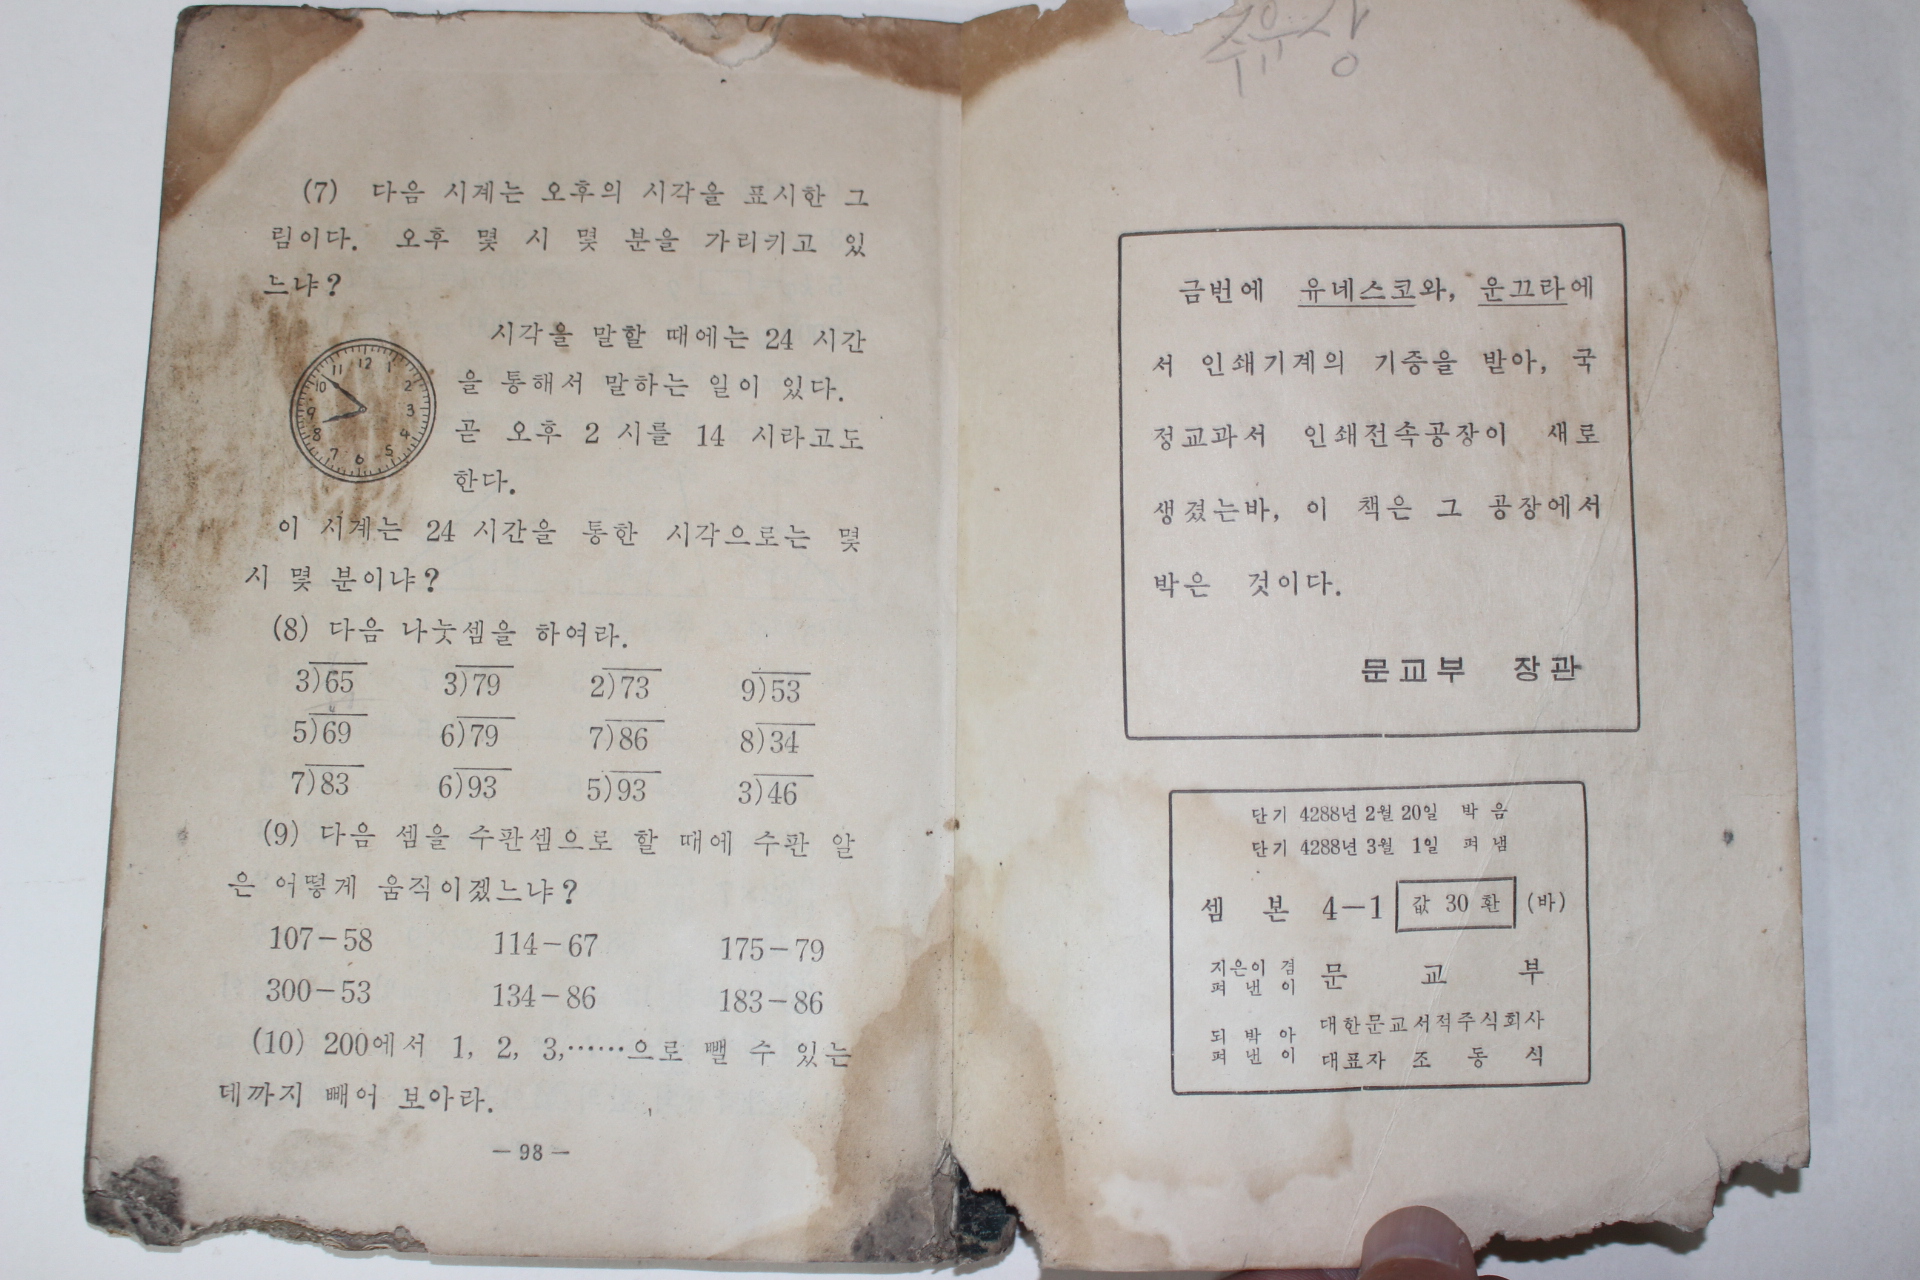 (7) 다음 시계는 오후의 시각을 표시한 그
림이다. 오후 몇 시 몇 분을 가리키고 있
느냐?
12
1
2
3
4
5
6
7
8
9
10
11
시각을 말할 때에는 24 시간
을 통해서 말하는 일이 있다.
곧 오후 2 시를 14 시라고도
한다.
이 시계는 24 시간을 통한 시각으로는 몇
시 몇 분이냐?
(8) 다음 나눗셈을 하여라.
3)65 3)79 2)73 9)53
5)69 6)79 7)86 8)34
7)83 6)93 5)93 3)46
(9) 다음 셈을 수판셈으로 할 때에 수판 알
은 어떻게 움직이겠느냐?
107-58 114-67 175-79
300-53 134-86 183-86
(10) 200에서 1, 2, 3,……으로 뺄 수 있는
데까지 빼어 보아라.
— 98 —
금번에 유네스코와, 운끄라에
서 인쇄기계의 기증을 받아, 국
정교과서 인쇄전속공장이 새로
생겼는바, 이 책은 그 공장에서
박은 것이다.
문교부 장관
단기 4288년 2월 20일 박음
단기 4288년 3월 1일 펴냄
셈본 4—1 값 30 환 (바)
지은이 겸
펴 낸 이
문교부
되 박 아
펴 낸 이
대한문교서적주식회사
대표자 조동식